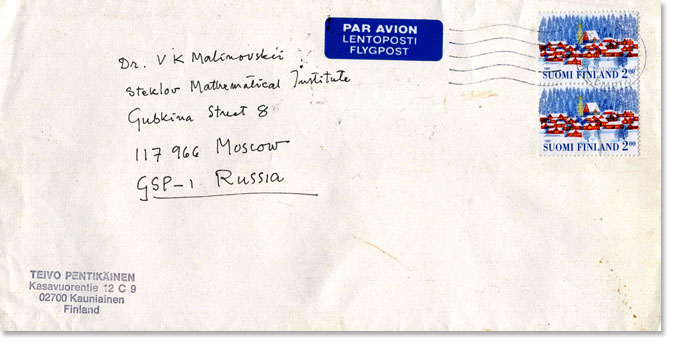 PAR AVION
LENTOPOSTI
FLYGPOST
SUOMI FINLAND 2,00
SUOMI FINLAND 2,00
Dr. V K Malinovskii
Steklov Mathematical Institute
Gubkina Street 8
117 966 Moscow
GSP-1 Russia
TEIVO PENTIKÄINEN
Kasavuorentie 12 C 9
02700 Kauniainen
Finland